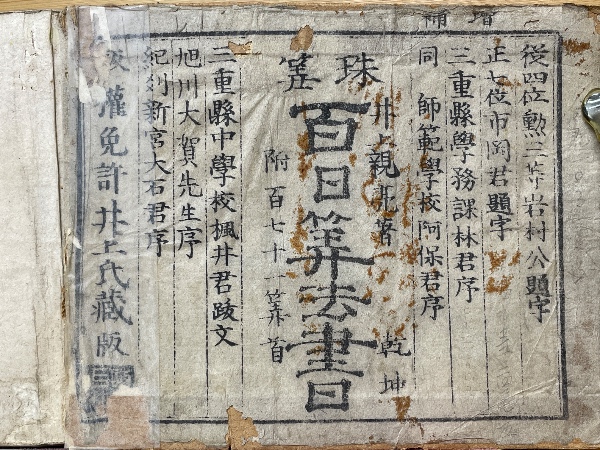 増補
珠筭
從四位勲三等岩村公題字
正七位市岡君題字
三重縣學務課林君序
同 師範學校阿保君序
井上親 著 乾坤
百日筭法書
附百七十一筭首
三重縣中學校楓井君跋文
旭川大賀先生序
紀刕新宮大石君序
版權免許井上氏藏版